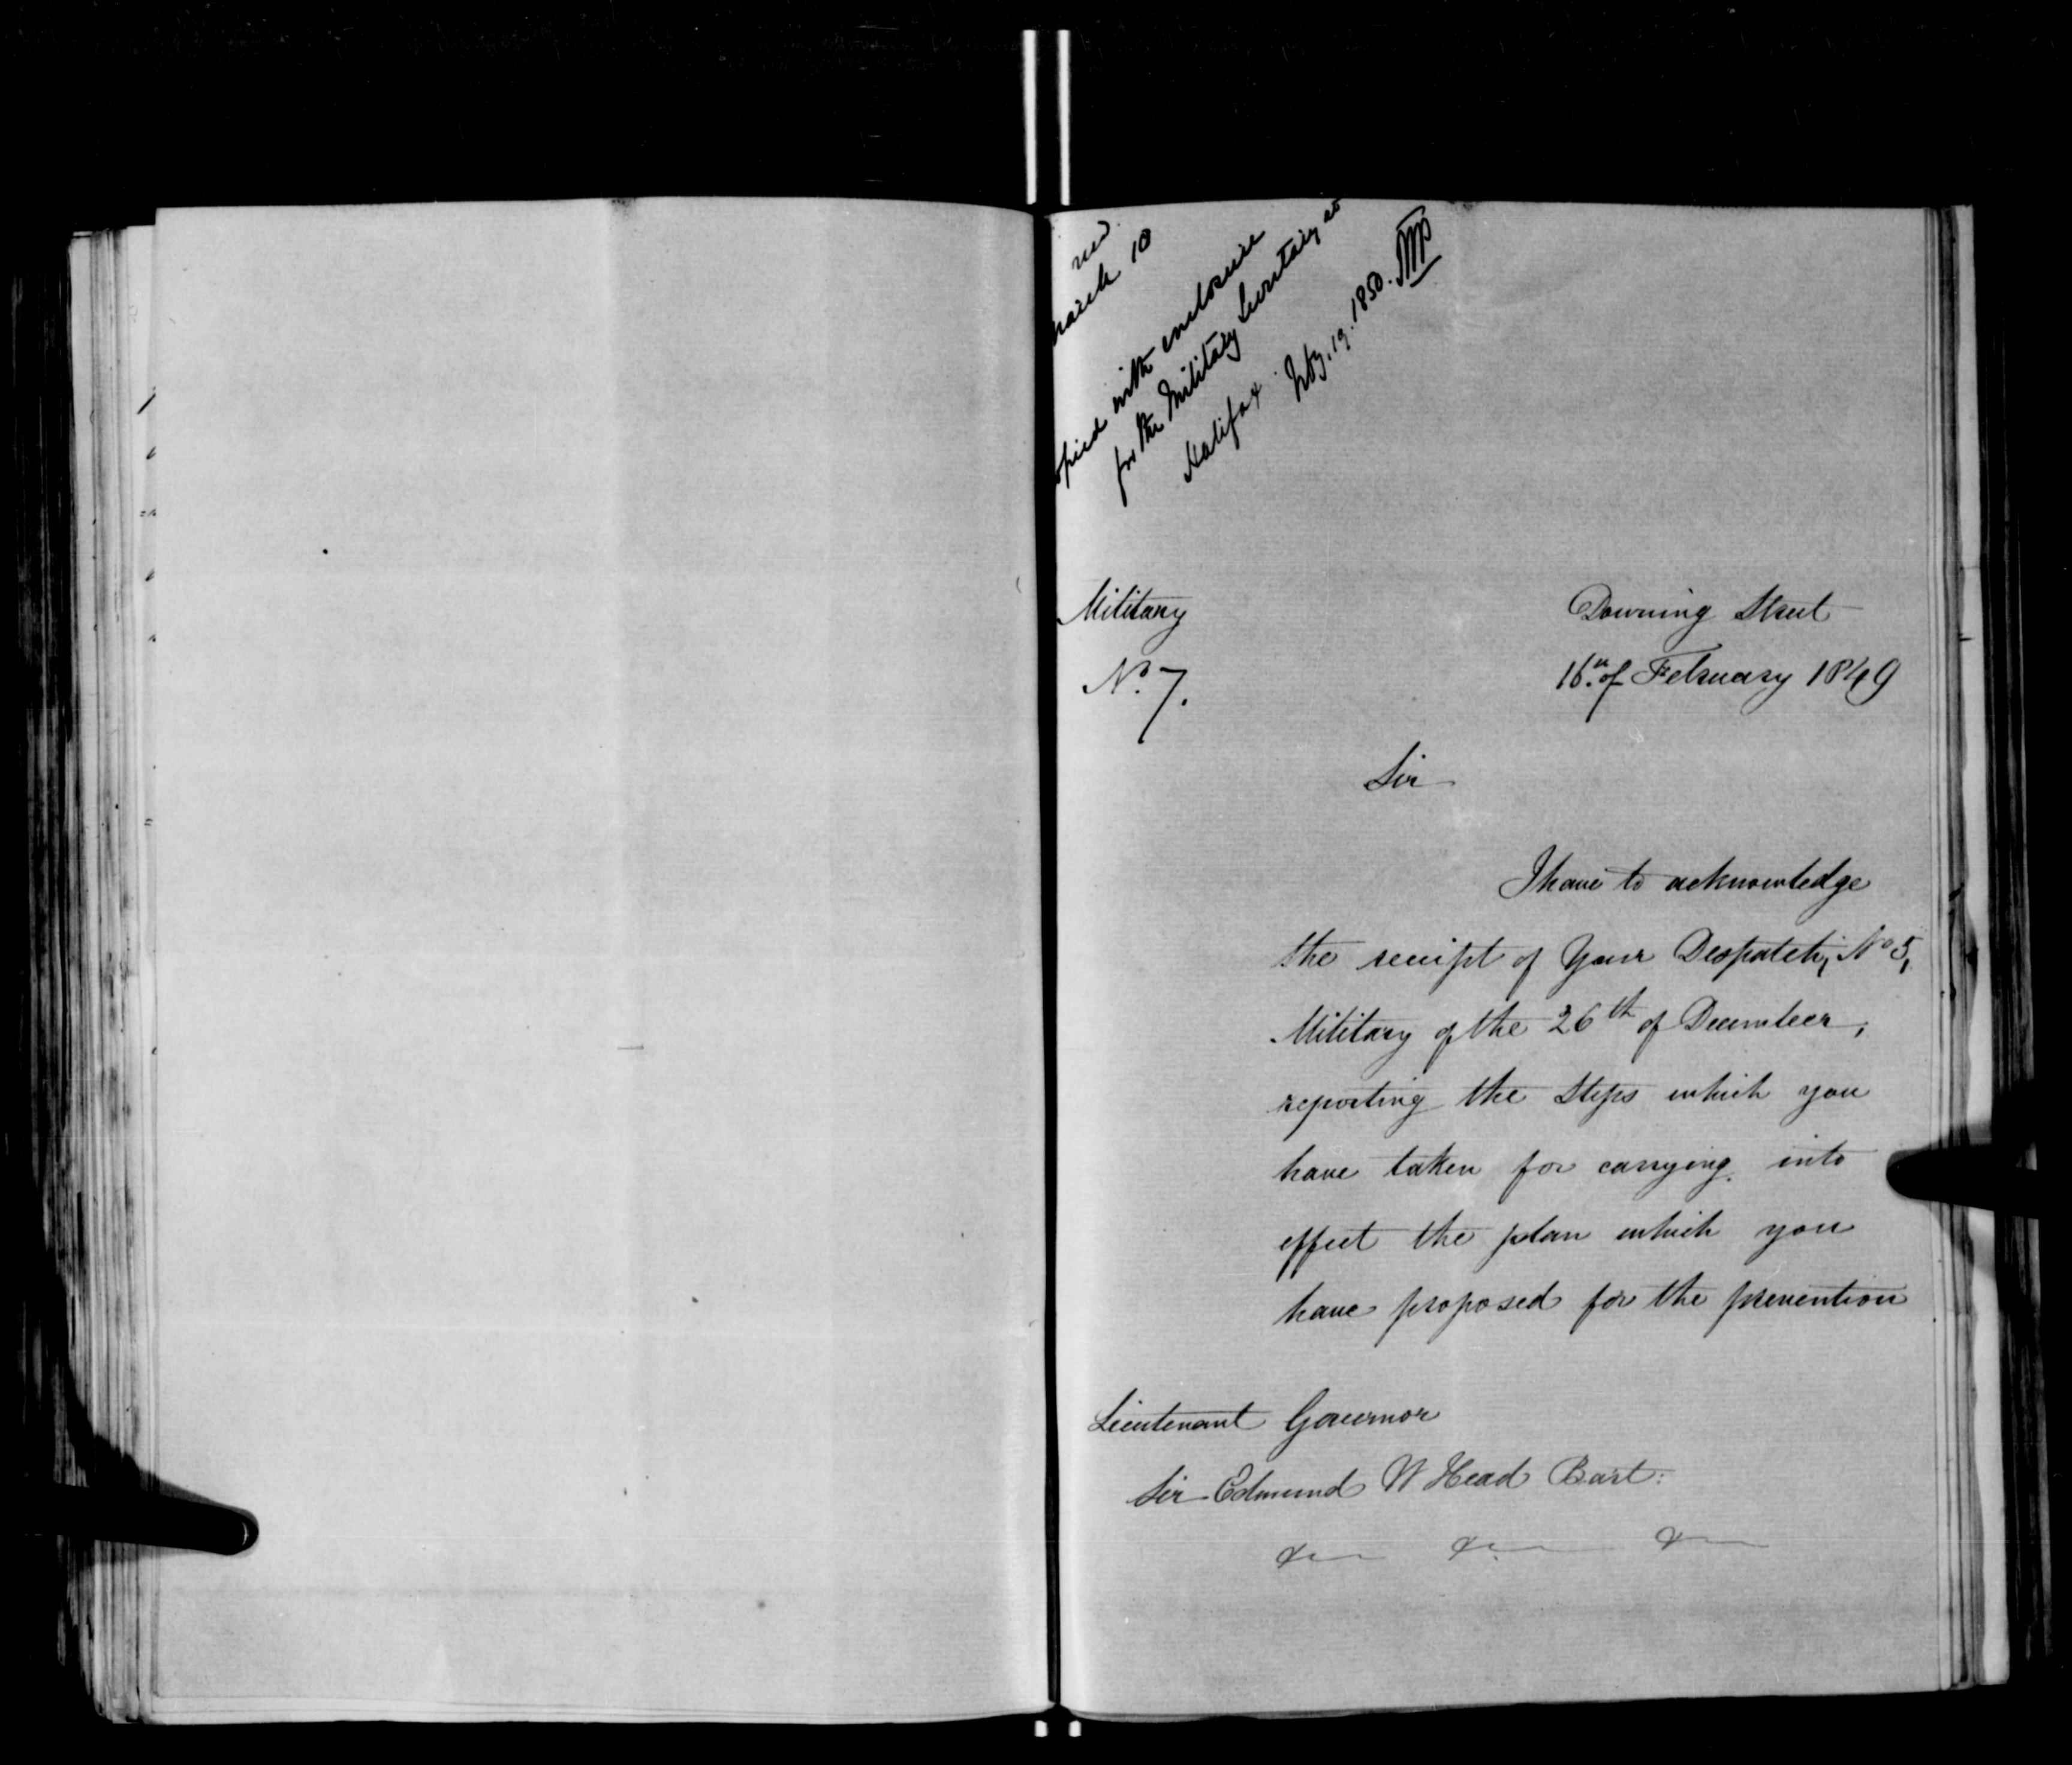 March 10
with enclosure
for the Military Secretary at
Halifax 19. 1850.
Military
Downing Street
No. 7.
16th of February 1849
Sir
I have to acknowledge
the receipt of Your Despatch, No 5,
Military of the 26th of December,
reporting the Steps which you
have taken for carrying into
effect the plan which you
have proposed for the prevention
Lieutenant Governor
Sir Edmund W Head Bart:
&c &c &c